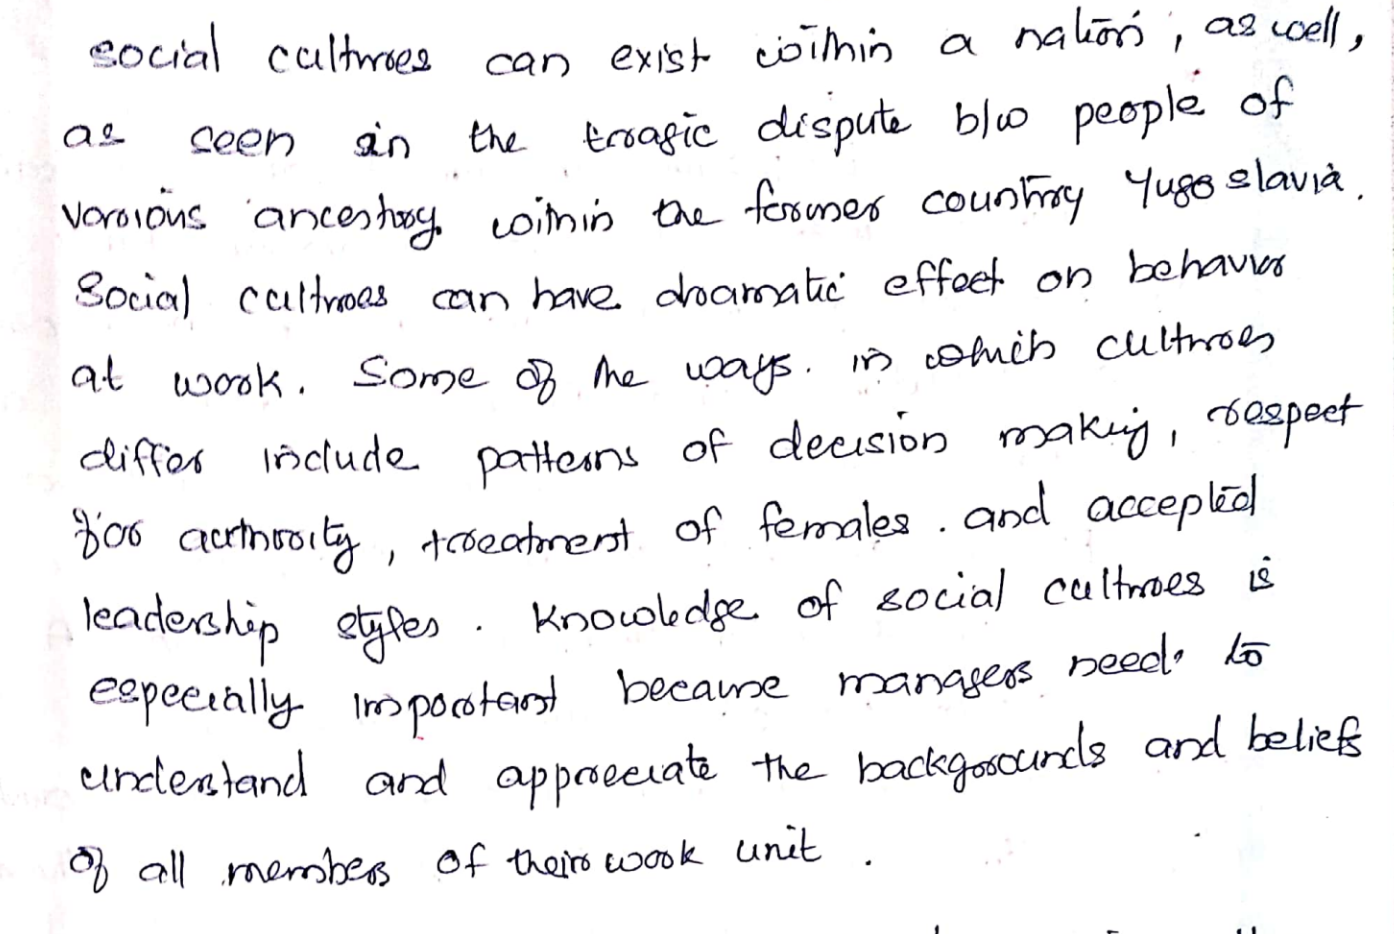 social cultures can exist within a nation, as well,
as seen in the tragic dispute b/w people of
various ancestry within the former country Yugoslavia.
Social cultures can have dramatic effect on behavior
at work. Some of the ways. in which cultures
differ include patterns of decision making, respect
for authority, treatment of females. and accepted
leadership styles. Knowledge of social cultures is
especially important because managers need to
understand and appreciate the backgrounds and beliefs
of all members of their work unit.